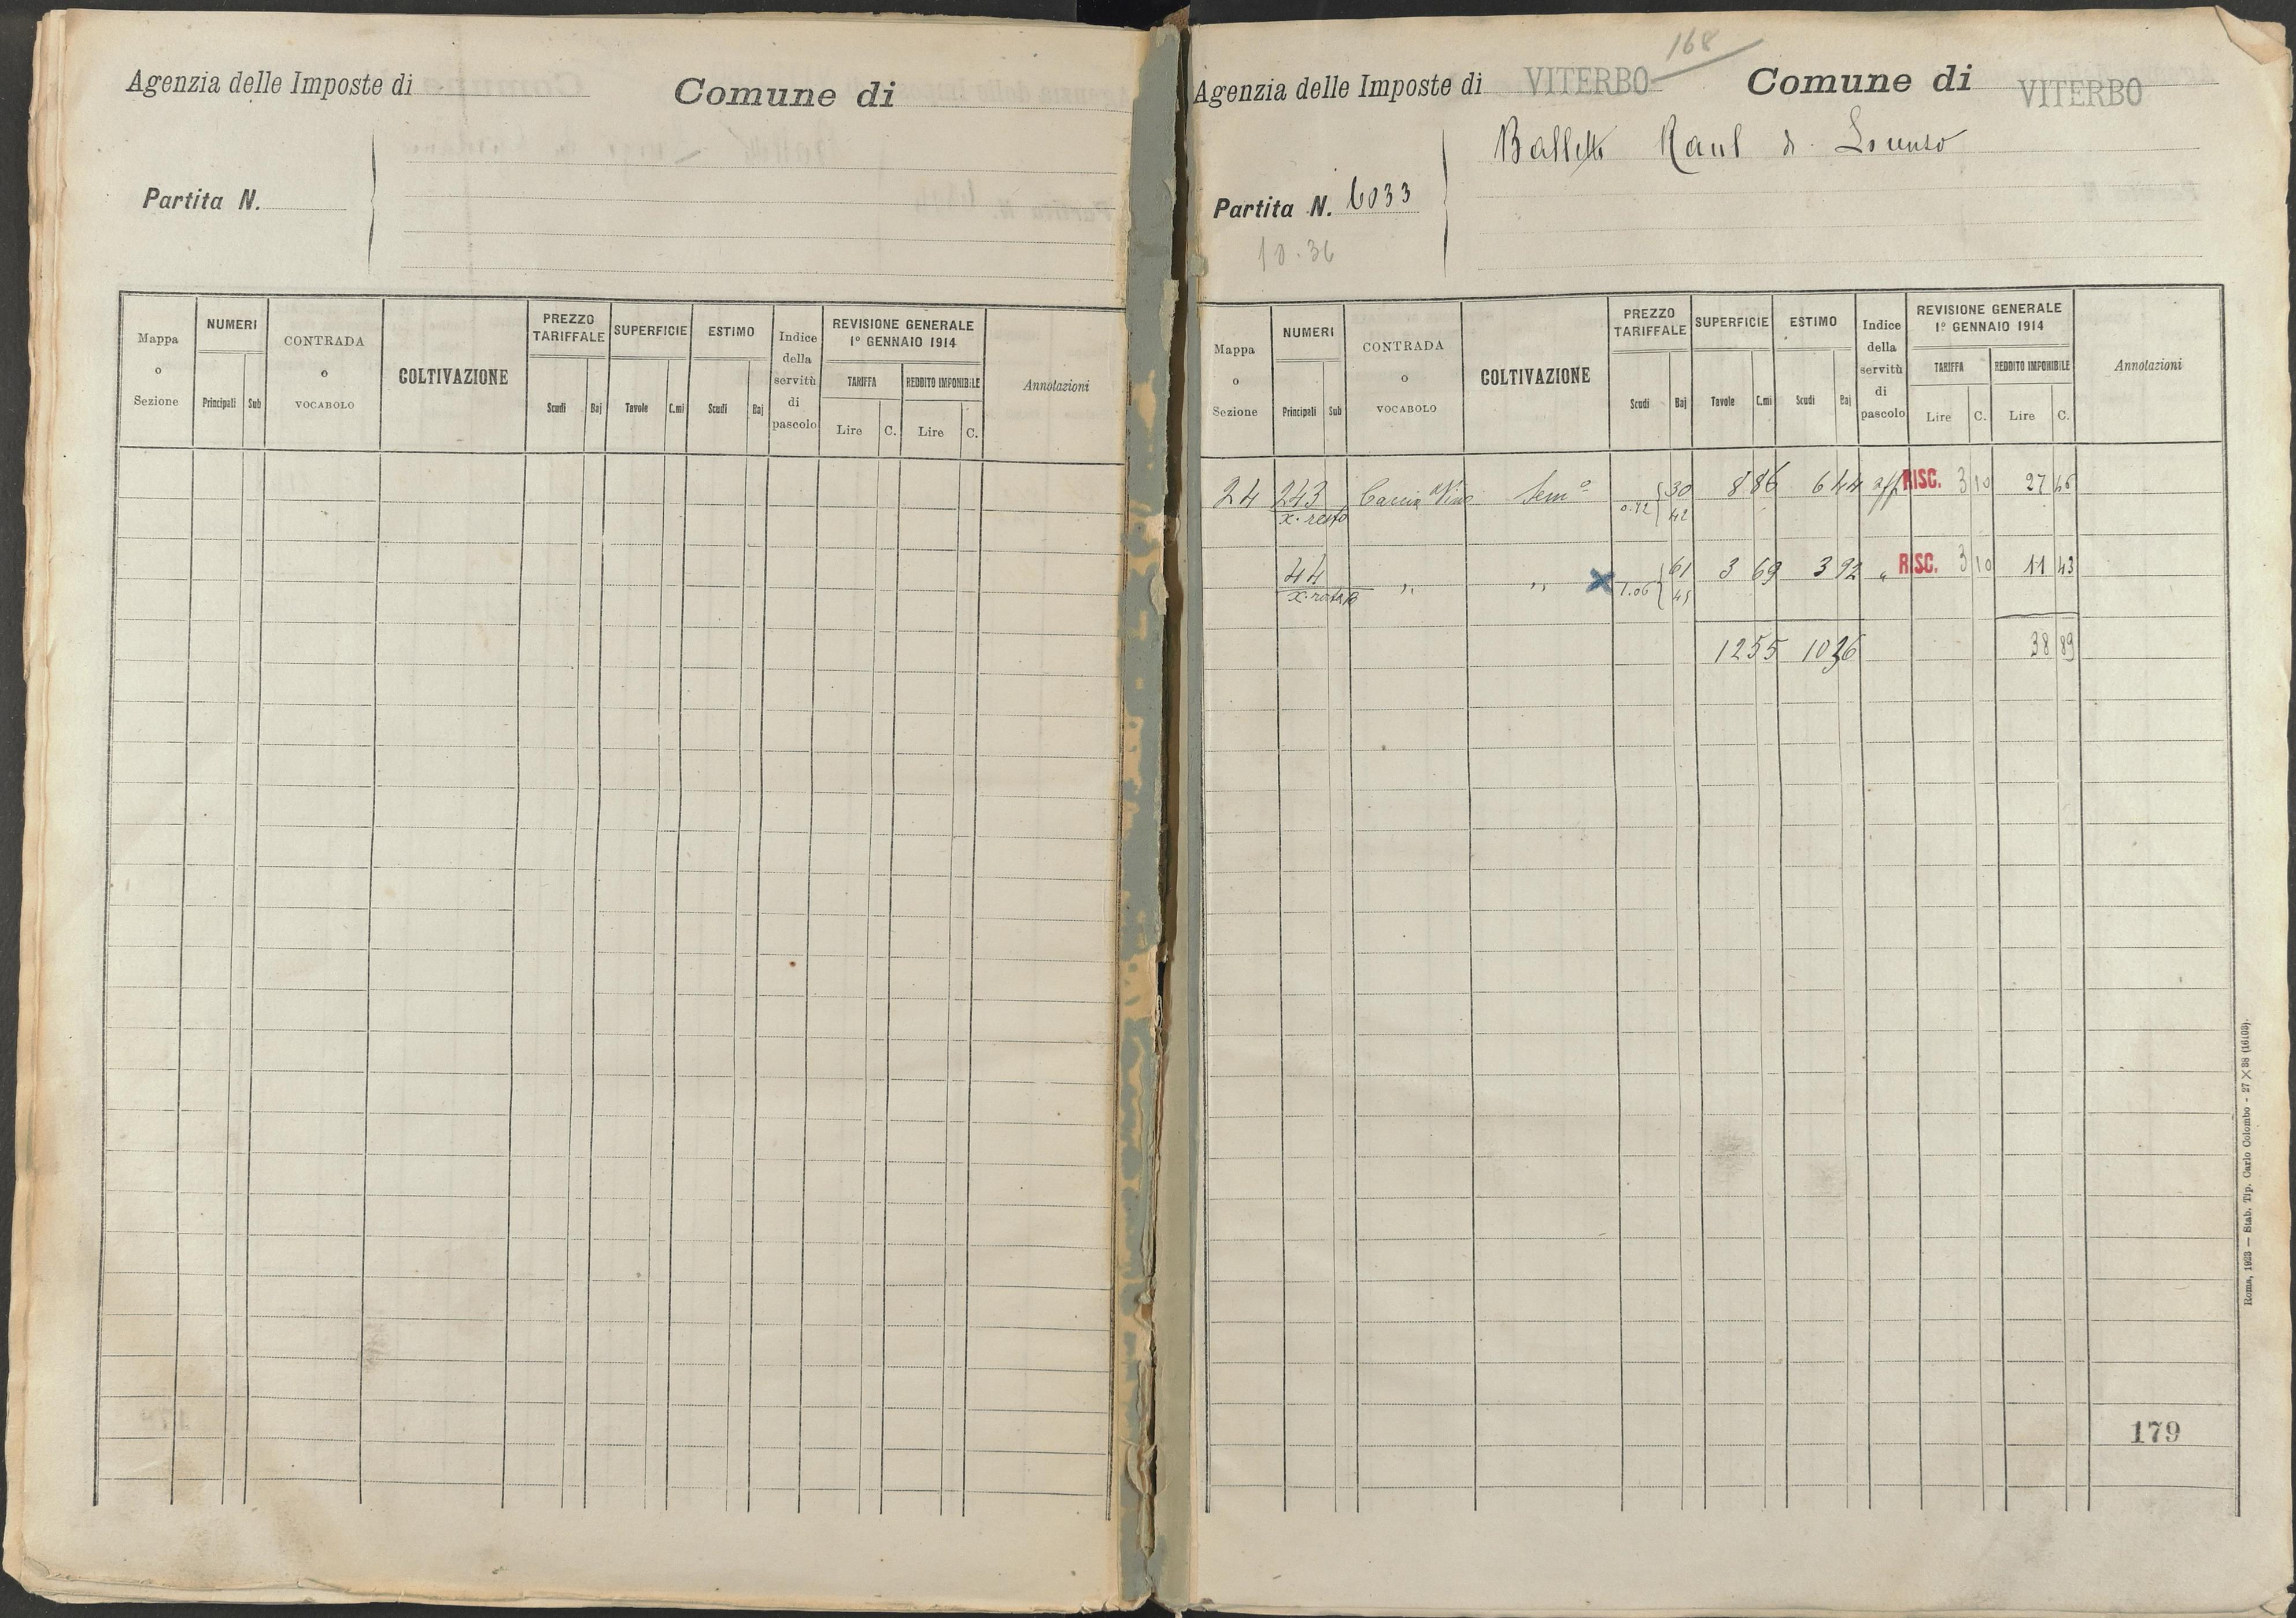 Agenzia delle Imposte di
Comune di
Partita N.
Mappa o Sezione
NUMERI
Principali
Sub
CONTRADA o VOCABOLO
COLTIVAZIONE
PREZZO TARIFFALE
Scudi
Baj
SUPERFICIE
Tavole
C.mi
ESTIMO
Scudi
Baj
Indice della servitù di pascolo
REVISIONE GENERALE
1º GENNAIO 1914
TARIFFA
REDDITO IMPONIBILE
Lire
C.
Lire
C.
Annotazioni
168
Agenzia delle Imposte di VITERBO
Comune di VITERBO
Balletti Raul di Lorenzo
Partita N. 6033
10.36
Mappa o Sezione
NUMERI
Principali
Sub
CONTRADA o VOCABOLO
COLTIVAZIONE
PREZZO TARIFFALE
Scudi
Baj
SUPERFICIE
Tavole
C.mi
ESTIMO
Scudi
Baj
Indice della servitù di pascolo
REVISIONE GENERALE
1º GENNAIO 1914
TARIFFA
REDDITO IMPONIBILE
Lire
C.
Lire
C.
Annotazioni
24 243 Sem.º 30 8 86 6 44 aff. RISC. 3 10 27 46
x. resto 0.72 42
44 " " x 61 3 69 3 92 " RISC. 3 10 11 43
1.06 45
12 55 10 36 38 89
179
Roma, 1923 — Stab. Tip. Carlo Colombo - 27 X 38 (16103).